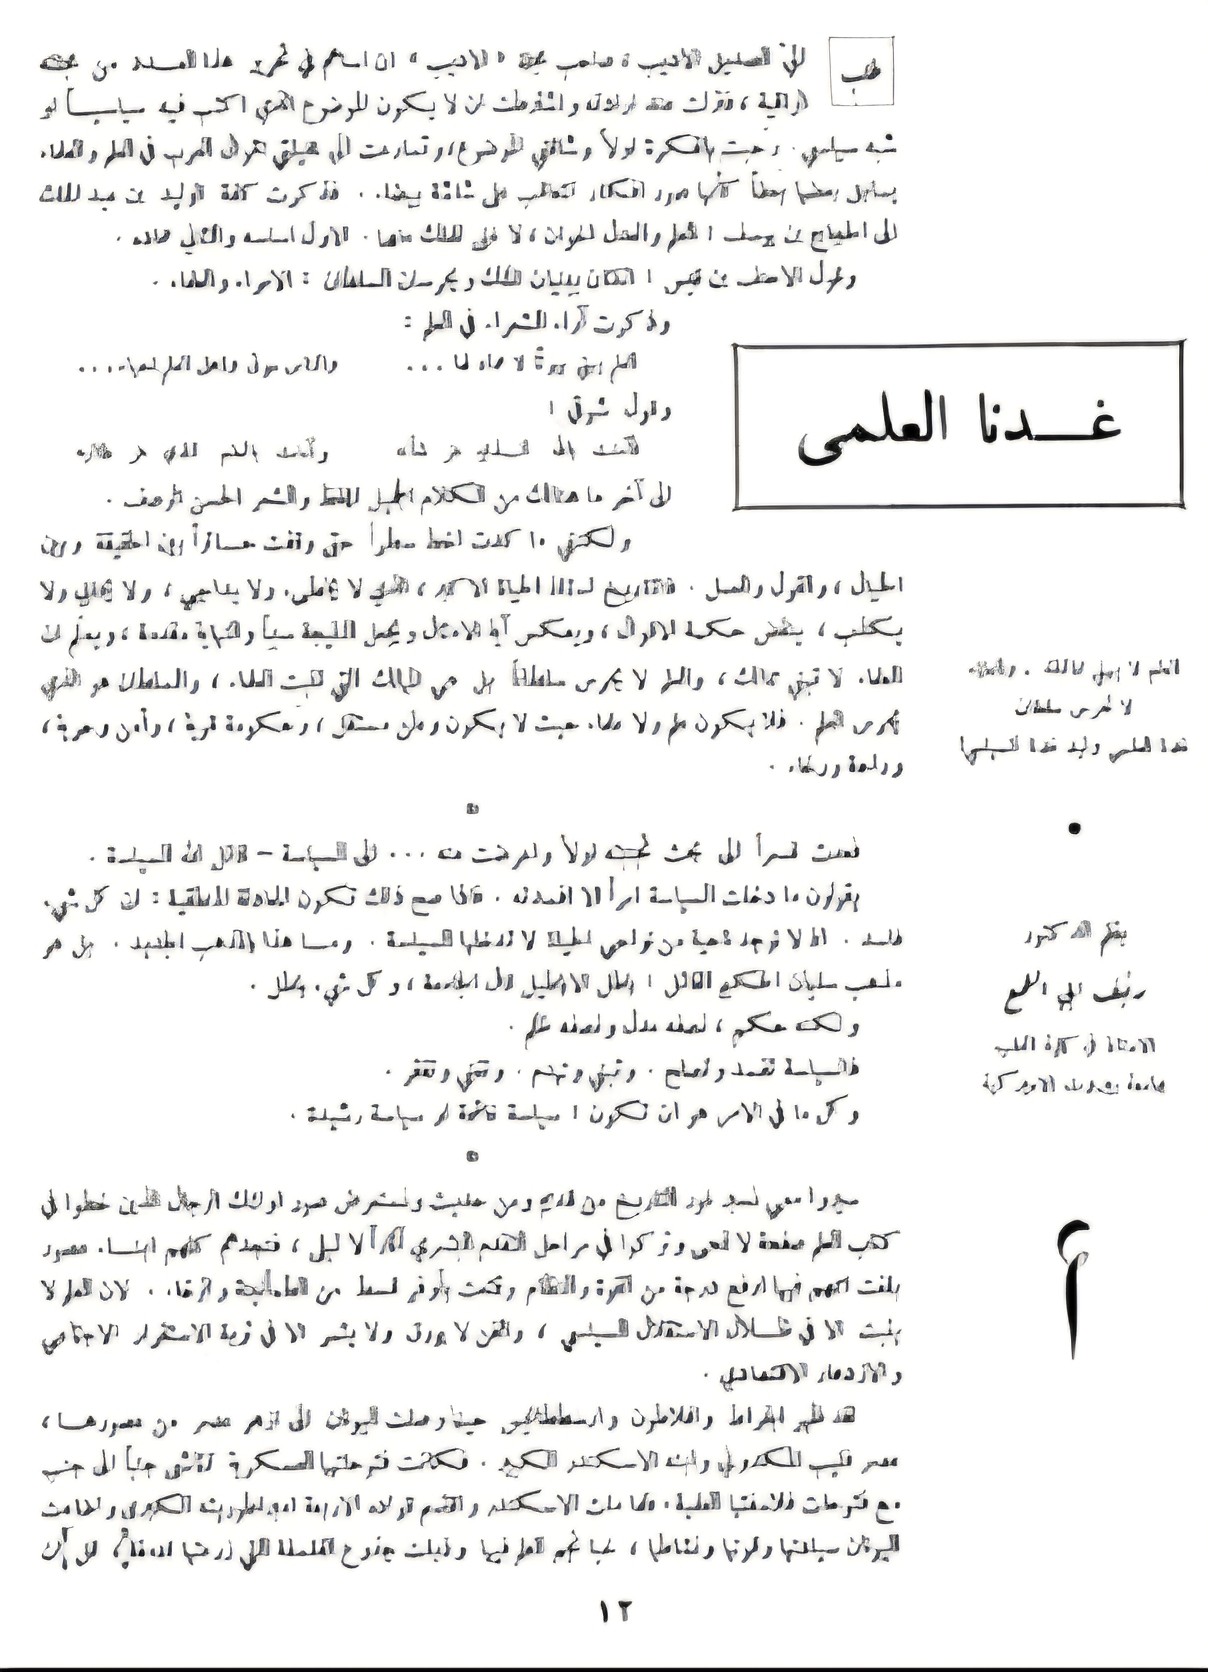 طلب
إليّ الصديق الأديب، صاحب مجلة «الأديب» ان اساهم في تحرير هذا العدد من مجلته
الراقية، فنزلت عند ارادته واشترطت ان لا يكون الموضوع الذي اكتب فيه سياسياً او
شبه سياسي. رحبت بالفكرة اولاً و الموضوع، وتسارعت الى مخيلتي اقوال العرب في العلم والعلماء
بعضها بعضاً كأنها صور افكار تتعاقب على شاشة بيضاء. فذكرت كلمة الوليد بن عبد الملك
الى الحجاج بن يوسف: العلم والعدل اخوان، لا غنى للملك عنهما. الاول اساسه والثاني عماده.
وقول الاحنف بن قيس: اثنان يبنيان الملك ويحرسان السلطان: الامراء والعلماء.
وذكرت آراء الشعراء في العلم:
العلم يبني بيوتاً لا عماد لها ... والناس موتى واهل العلم احياء ...
وقول شوقي:
الى آخر ما هنالك من الكلام الجميل اللفظ والشعر الحسن الرصف.
ولكنني ما كدت اخط سطراً حتى وقفت حائراً بين الحقيقة وبين
الخيال، والقول والعمل. فالتاريخ استاذ الحياة الاكبر، الذي لا يخطىء ولا يداجي، ولا يحابي ولا
يكذب، ينقض حكمة الاقوال، ويعكس آية الامثال ويجعل النتيجة سبباً والنهاية مقدمة، ويعلم ان
العلماء لا تبني ممالك، والعلم لا يحرس سلطاناً بل هي الممالك التي تنبت العلماء، والسلطان هو الذي
يحرس العلم. فلا يكون علم ولا علماء حيث لا يكون وطن مستقل، وحكومة قوية، وأمن وحرية،
وراحة ورخاء.
فعدت قسراً الى بحث تجنبته اولاً واعرضت عنه ... الى السياسة – قاتل الله السياسة.
يقولون ما دخلت السياسة امراً الا افسدته. فاذا صح ذلك تكون المعادلة المنطقية: ان كل شيء
فاسد. اذ لا توجد ناحية من نواحي الحياة لا تدخلها السياسة. وما هذا المذهب الجديد. بل هو
مذهب سليمان الحكيم القائل: باطل الاباطيل قال الجامعة، وكل شيء باطل.
ولكنه حكم، نصفه عدل ونصفه ظلم.
فالسياسة تفسد وتصلح. وتبني وتهدم. وتغني وتفقر.
وكل ما في الامر هو ان تكون: سياسة غاشمة او سياسة رشيدة.
سيروا معي نسبر غور التاريخ من قديم ومن حديث ونستعرض صور اولئك الرجال الذين خطوا في
كتاب العلم صفحة لا تمحى وتركوا في مراحل التقدم البشري آثاراً لا تبلى، فنجدهم كلهم ابناء عصور
بلغت اممهم فيها ارفع درجة من القوة والنظام وتمتعت بأوفر قسط من الطمأنينة والرخاء. لان العلم لا
ينبت الا في ظلال الاستقلال السياسي، والفن لا يورق ولا يثمر الا في تربة الاستقرار الاجتماعي
والازدهار الاقتصادي.
لقد ظهر ابقراط وافلاطون وارسططاليس حينما وصلت اليونان الى ازهر عصر من عصورها،
عصر فيليب المكدوني وابنه الاسكندر الكبير. فكانت فتوحاتها العسكرية تتمشى جنباً الى جنب
مع فتوحات فلاسفتها العلمية. ولما مات الاسكندر واقتسم قواده الاربعة امبراطوريته الكبرى واضاعت
اليونان سيادتها وقوتها ونشاطها، خبا نجم العلم فيها وذبلت جذوع الفلسفة التي زرعتها
غدنا العلمي
العلم لا يبني ممالك. والعلماء
لا تحرس سلطان
غدنا العلمي وليد غدنا السياسي
بقلم الدكتور
رئيف ابي اللمع
الاستاذ في كلية الطب
جامعة بيروت الاميركية
١٢